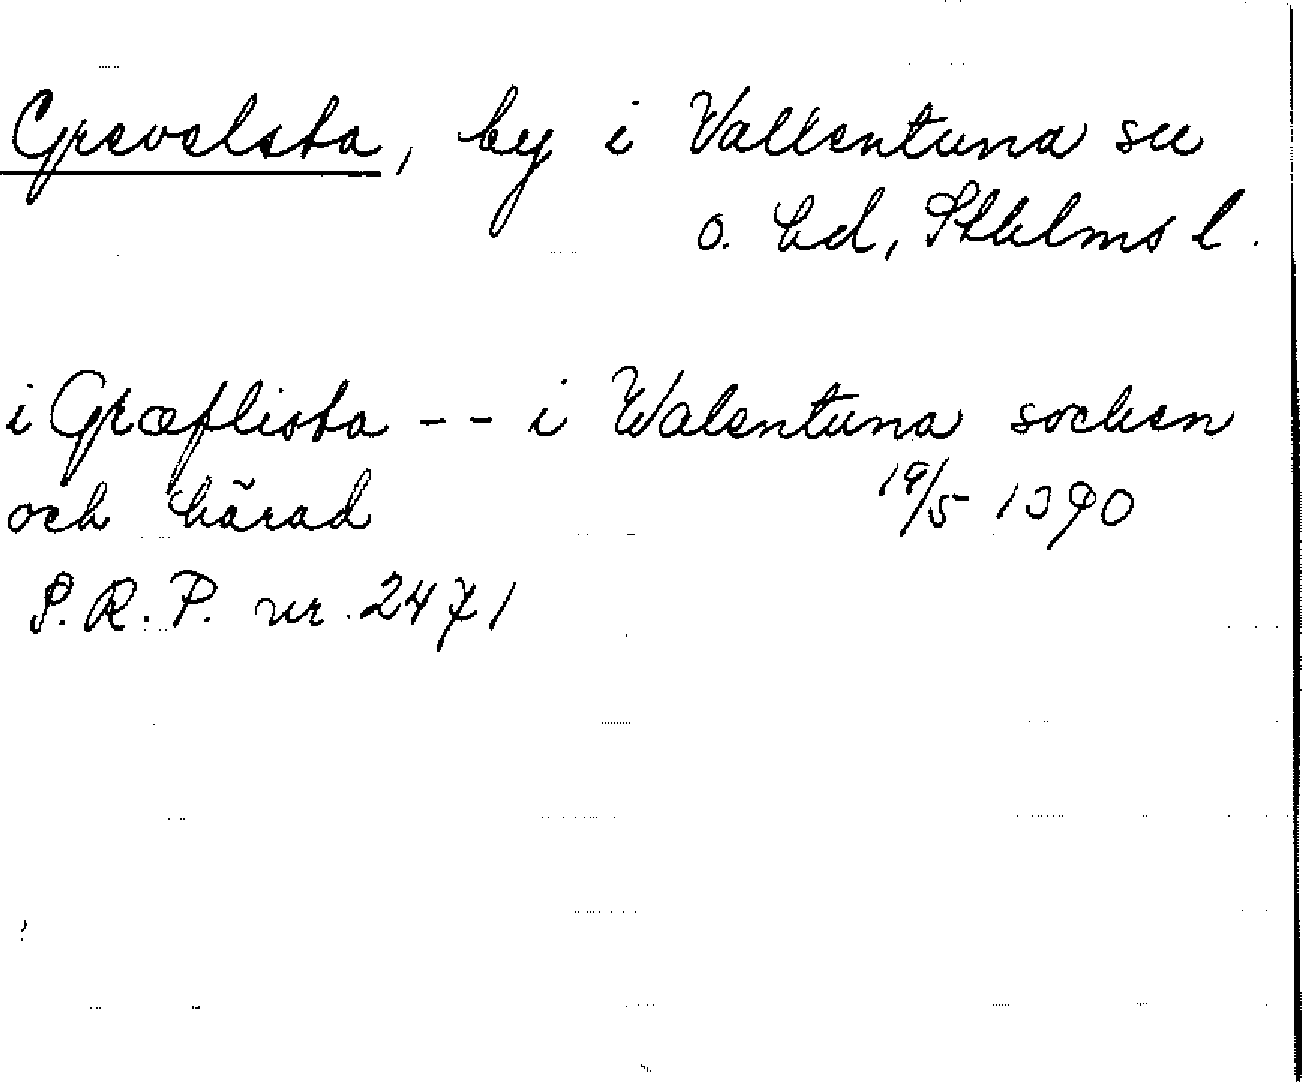 Grevelsta, by i Vallentuna sn
o. hd, Sthlms l.
i Græflista -- i Walentuna socken
och härad 19/5 1390
S.R.P. nr. 2471